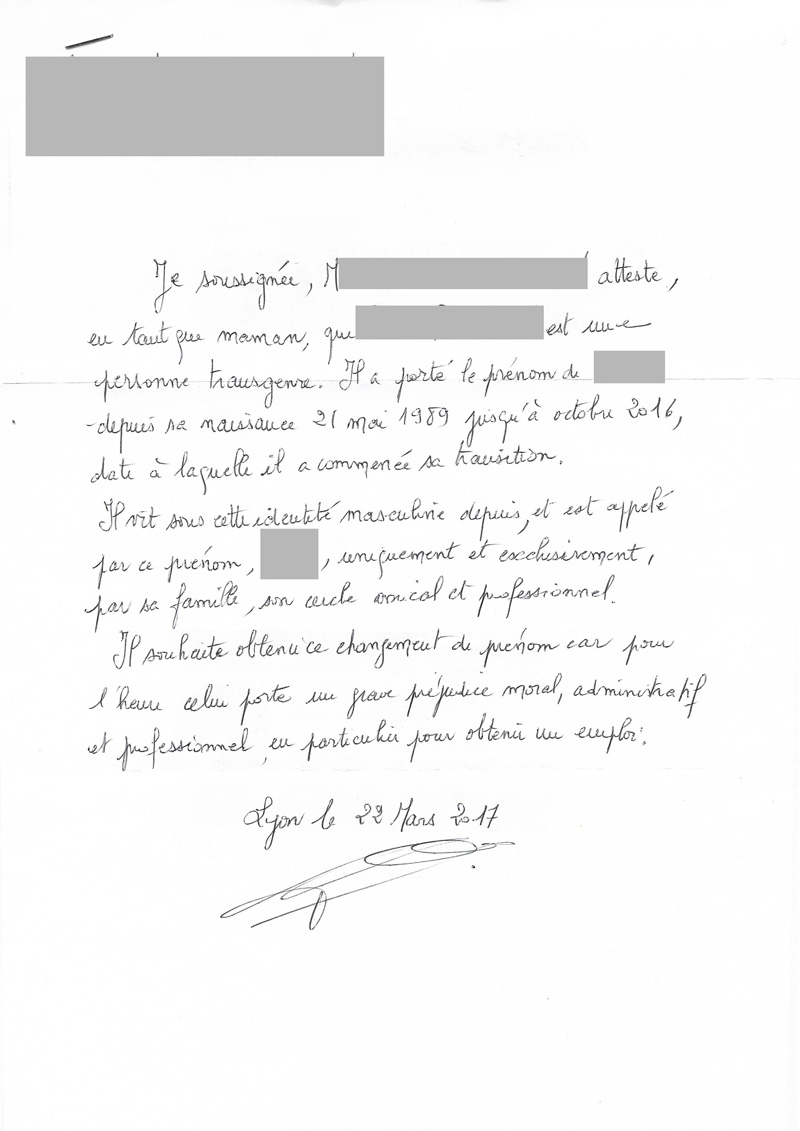 Je soussignée, M atteste,
en tant que maman, que est une
personne transgenre. Il a porté le prénom de
depuis sa naissance 21 mai 1989 jusqu'à octobre 2016,
date à laquelle il a commencée sa transition.
Il vit sous cette identité masculine depuis, et est appelé
par ce prénom, , uniquement et exclusivement,
par sa famille, son cercle amical et professionnel.
Il souhaite obtenir ce changement de prénom car pour
l'heure celui porte un grave préjudice moral, administratif
et professionnel, en particulier pour obtenir un emploi.
Lyon le 22 Mars 2017